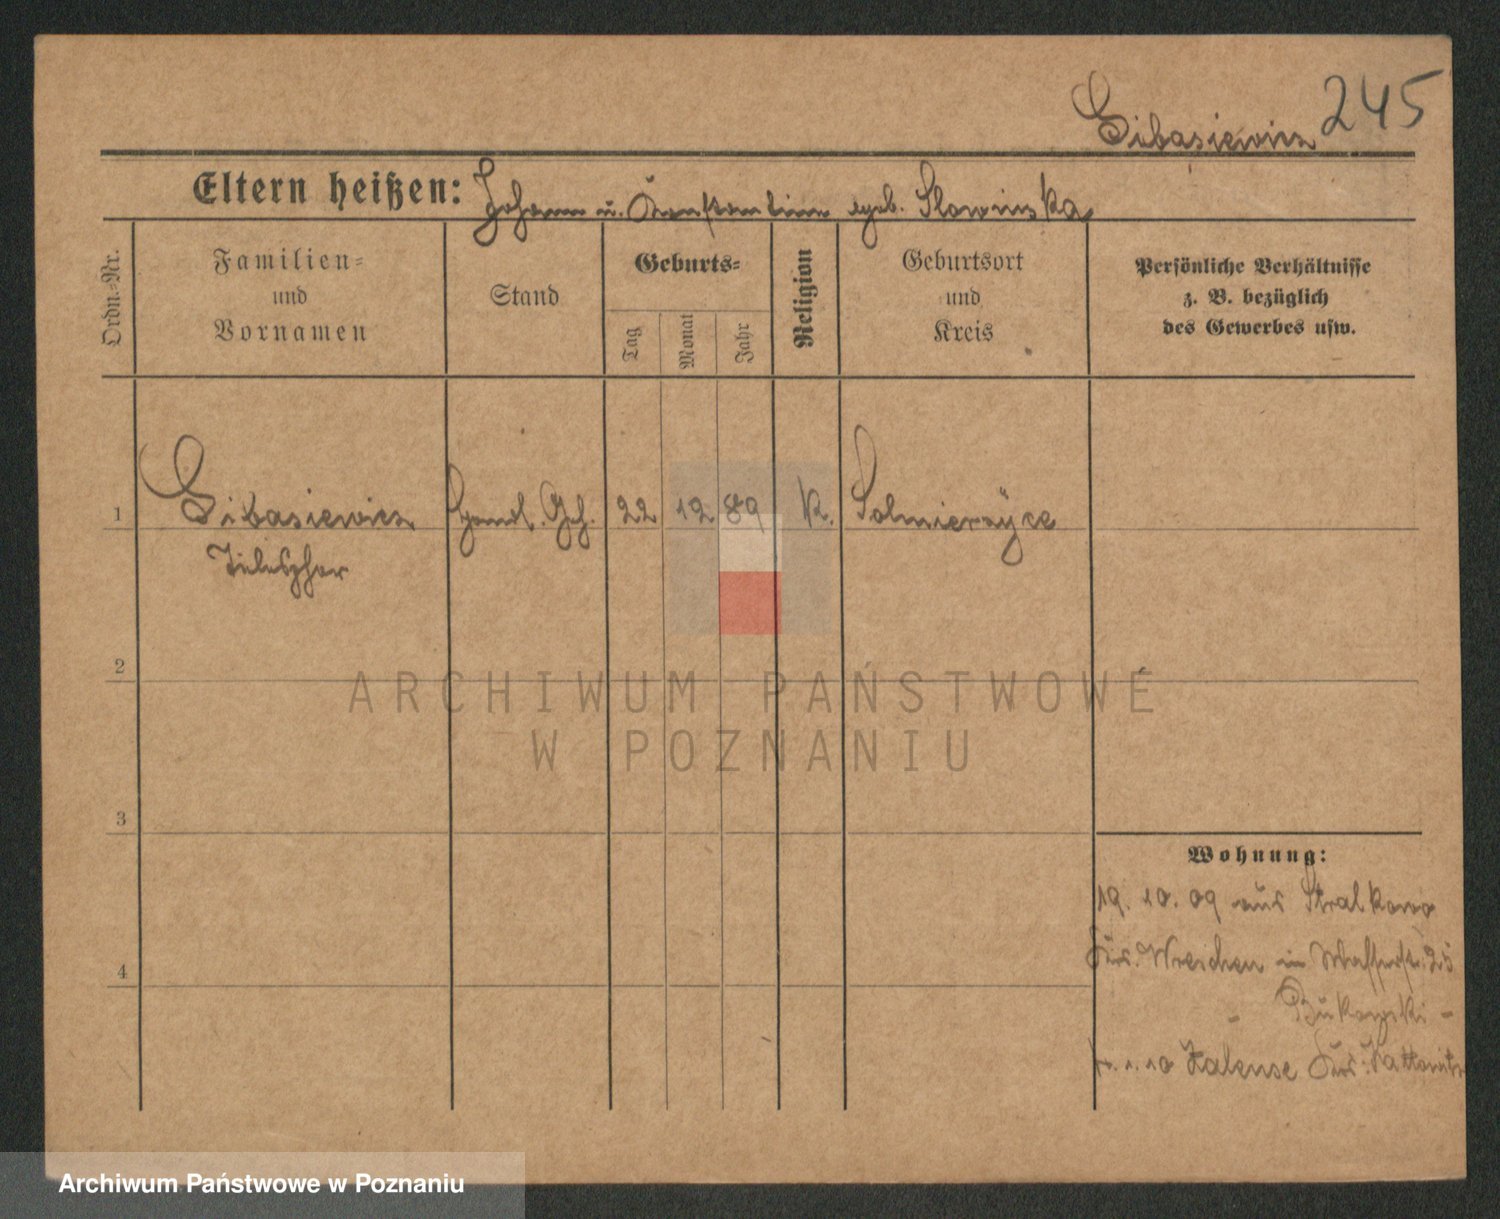 245
Gibasiewicz
Eltern heißen: Johann u. Konstantine geb. Slowinska
Ordn.-Nr.
Familien-
und
Vornamen
Stand
Geburts-
Tag
Monat
Jahr
Religion
Geburtsort
und
Kreis
Persönliche Verhältnisse
z. B. bezüglich
des Gewerbes usw.
1 Gibasiewicz Handl. Geh. 22 12 89 K.
Telesphor
2
3
4
Wohnung:
19. 10. 09 aus Stralkowo
Krs. Wreschen in 25
- Bukowski -
1. 10 Zalense Krs. Kattowitz
ARCHIWUM PAŃSTWOWE
W POZNANIU
Archiwum Państwowe w Poznaniu